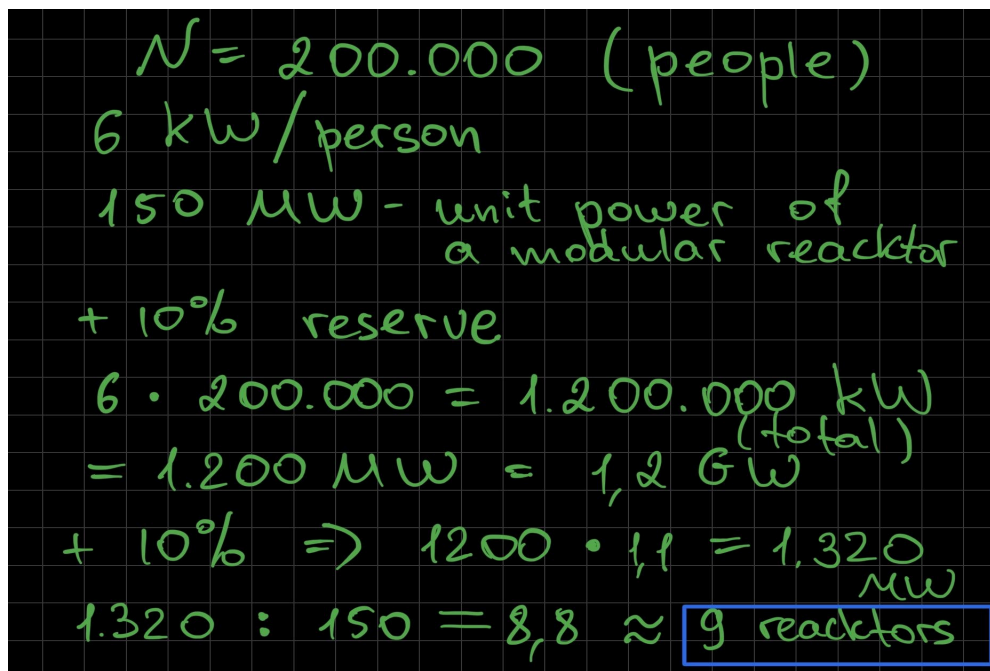 N = 200.000 (people)
6 kW/person
150 MW - unit power of
a modular reacktor
+ 10% reserve
6 · 200.000 = 1.200.000 kW
(total)
= 1.200 MW = 1,2 GW
+ 10% => 1200 · 1,1 = 1.320
MW
1.320 : 150 = 8,8 ≈ 9 reacktors